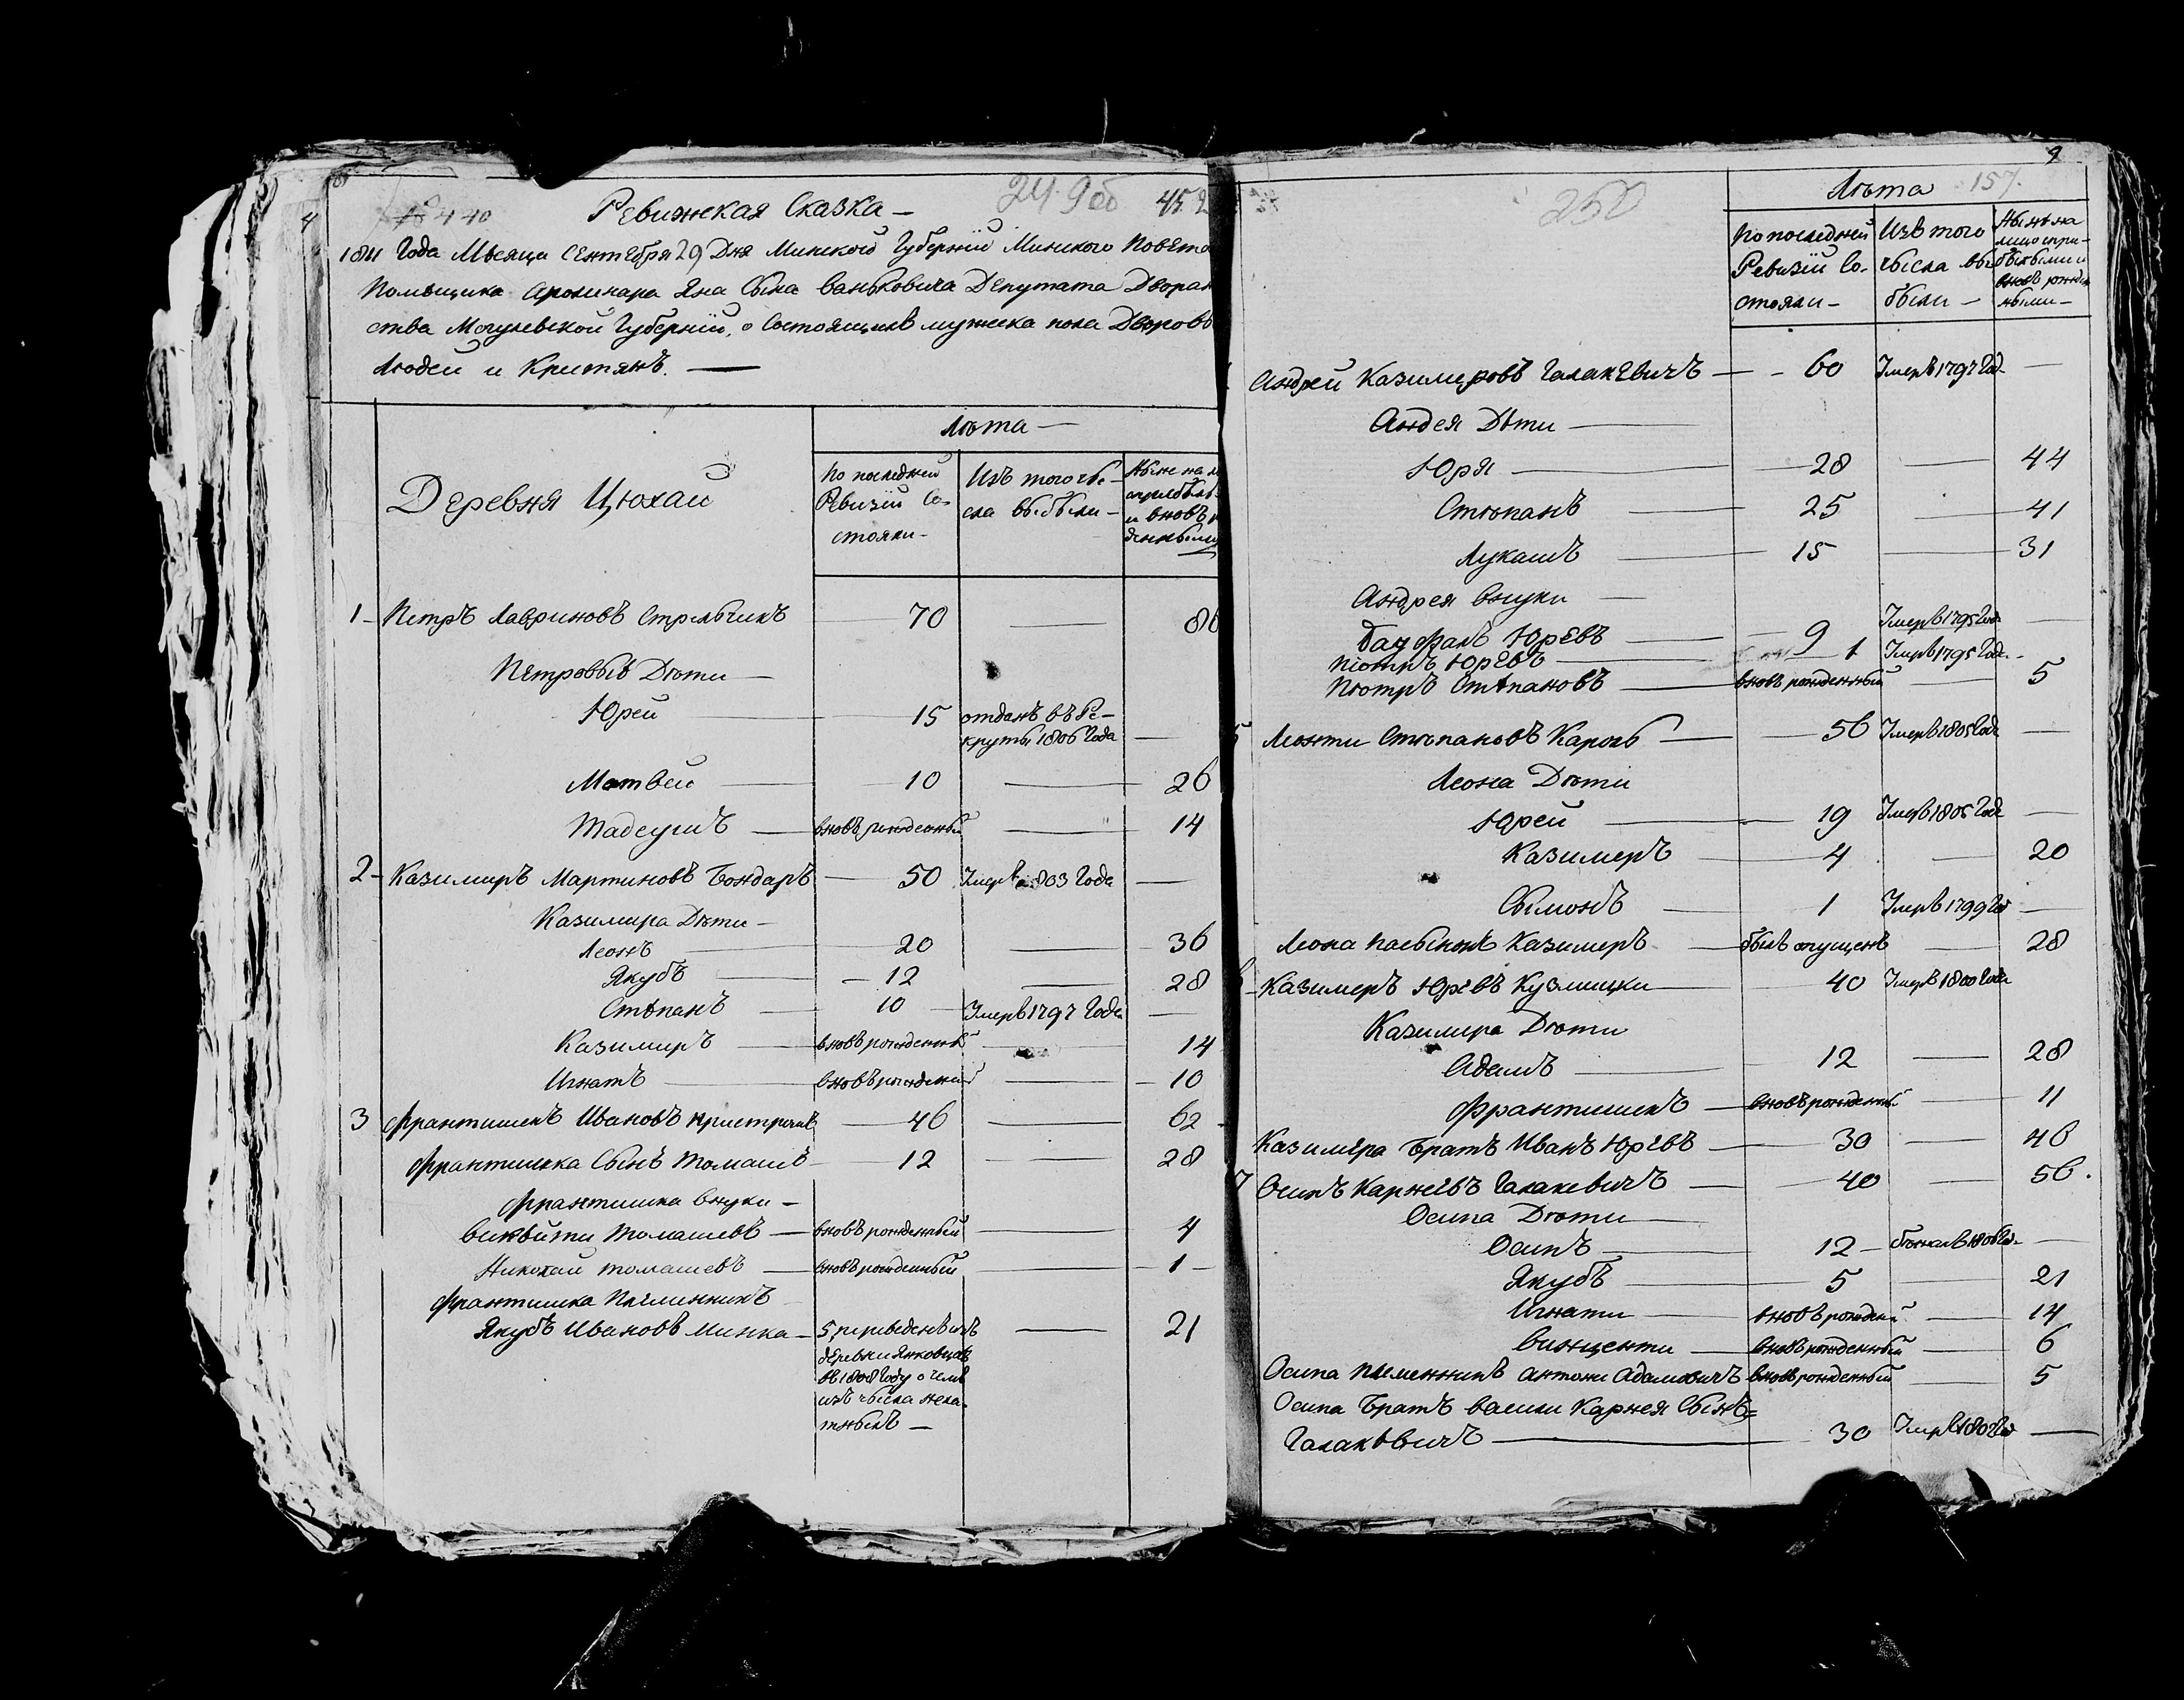 № 440 Ревижская Сказка — 249 об 452
1811 Года Мѣсяца Сентебря 29 Дня Минской Губерніи Минского Повѣта
Помѣщика Аполинара Яна Сына Ваньковича Депутата Дворан
ства Могулевской Губерніи, о Состоящихъ мужеска пола Дворовъ
Людей и Кристянъ. —
Лѣта —
Деревня Цюхаи
По последней Ревизіи Со- стояли -
Изъ того чи- сла выбыли -
Ныне на
и вновъ
1 - Петръ Лавриновъ Стрельчикъ — 70 —
Петровые Дѣти —
Юрей — 15 отданъ въ Ре-
круты 1806 Года —
Матвей — 10 — 26
Тадеушъ — вновъ рожденный — 14
2 - Казимиръ Мартиновъ Бондаръ — 50 Умеръ 1803 Года —
Казимира Дѣти —
Леонъ — 20 — 36
Якубъ — 12 — 28
Стѣпанъ — 10 Умеръ 1797 Года —
Казимиръ — вновъ рожденный — 14
Игнатъ — вновъ рожденный — 10
3 Франтишекъ Ивановъ — 46 — 62
Франтишка Сынъ Томашъ — 12 — 28
Франтишка Внуки —
Томашевъ — вновъ рожденный — 4
Николай Томашевъ — вновъ рожденный — 1 -
Франтишка Племинникъ
Якубъ Ивановъ Минка — 5, переведенъ изъ — 21
деревни Янковцовъ
въ 1808 Году о чемъ
изъ чысла
тныхъ —
9
250
Лѣта 157.
По последней Ревизіи Со- стояли -
Изъ того чысла вы были -
Ныне на лицо спри- былыми и вновъ рожден ными -
Андрей Казимировъ Галакевичъ — 60 Умеръ 1797 Год —
Андея Дѣти —
Юря — 28 — 44
Стѣпанъ — 25 — 41
Лукашъ — 15 — 31
Андрея Внуки —
Юревъ — 9 Умеръ 1795 Года —
Піотръ Юревъ — 1 Умеръ 1795 Года -
Піотръ Стѣпановъ — вновъ рожденный — 5
5 Леонти Стѣпановъ Кароль — 56 Умеръ 1805 Года —
Леона Дѣти
Юрей — 19 Умеръ 1805 Года —
Казимеръ — 4 — 20
Сымонъ — 1 Умеръ 1799 Го —
Леона пасынокъ Казимеръ — былъ опущенъ — 28
Казимеръ Юревъ Кузмицки — 40 Умеръ 1800 Года
Казимира Дѣти
Адамъ — 12 — 28
Франтишекъ — вновъ рожденный — 11
Казимера Братъ Иванъ Юревъ — 30 — 46
7 Осипъ Карнѣевъ Галакевичъ — 40 — 56.
Осипа Дѣти —
Осипъ — 12 —
Якубъ — 5 — 21
Игнати — вновъ рожденый — 14
Винценти — вновъ рожденный — 6
Осипа племенникъ Антони Адамовичъ вновъ рожденный — 5
Осипа Братъ Васили Карнея Сынъ=
Галакѣвичъ — 30 Умеръ 1802 Го —